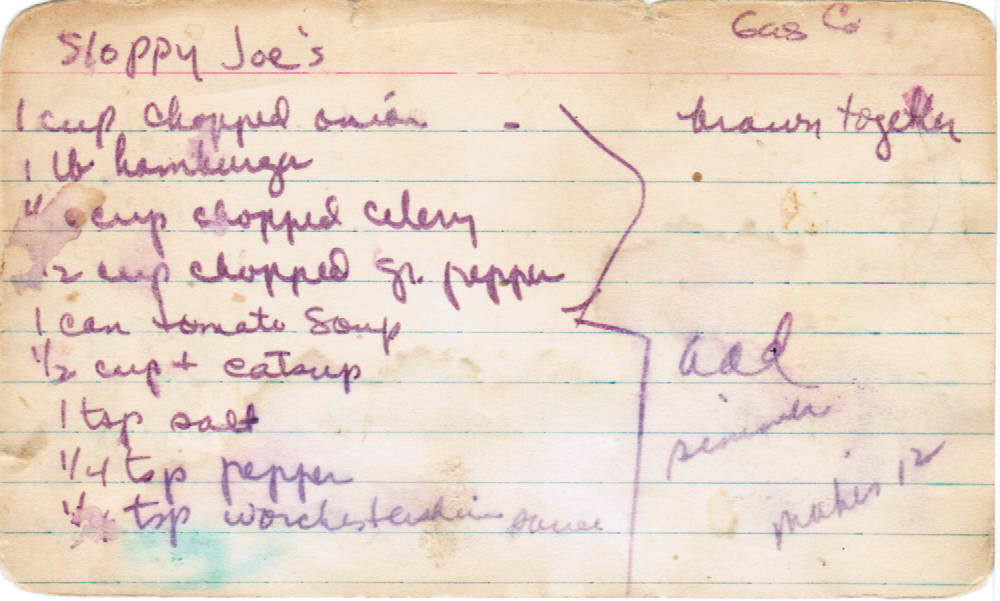 Gas Co
Sloppy Joe's
1 cup chopped onion - brown together
1 lb hamburger
cup chopped celery
1/2 cup chopped gr. pepper
1 can tomato soup
1/2 cup + catsup add
1 tsp salt simmer
1/4 tsp pepper makes 12
tsp worchestershire sauce